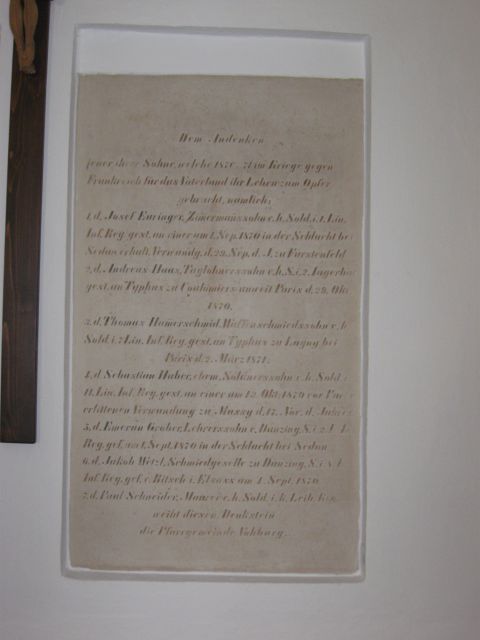 Dem Andenken
jener dieser Söhne, welche 1870/71 im Kriege gegen
Frankreich für das Vaterland ihr Leben zum Opfer
gebracht, nämlich:
1, d. Josef Euringer, Zimermanssohn v. h. Sold. i. 1. Lin.
Inf. Reg. gest. an einer am 1. Sep. 1870 in der Schlacht bei
Sedan erhalt. Verwundg. d. 29. Sep. d. J. zu Fürstenfeld
2, d. Andreas Haas, Taglöhnerssohn v. h. S. i. 2. Jägerba
gest. an Typhus zu Coulomiers unweit Paris d. 29. Okt
1870.
3, d. Thomas Hamerschmid, Waffenschmiedssohn v. h
Sold. i. 7 Lin. Inf. Reg. gest. an Typhus zu Lagny bei
Paris d. 2. März 1871.
4, d. Sebastian Huber, Söldnerssohn v. h. Sold. i
11. Lin. Inf. Reg. gest. an einer am 12. Okt. 1870 vor
erlittenen Verwundung zu Massy d. 17. Nov. d.
5, d. Emeran Gruber, Lehrerssohn v. Danzing, S. i. 2.
Reg. gef. am 1. Sept. 1870 in der Schlacht bei Sedan
6, d. Jakob Witzl, Schmiedgeselle zu Danzing, S. i.
Inf. Reg. gef. v. Bitsch i. Elsass am 1. Sept. 1870
7, d. Paul Schneider, Maurer v. h. Sold. i. k. Leib.
weiht diesen Denkstein
die Pfarrgemeinde Vohburg.